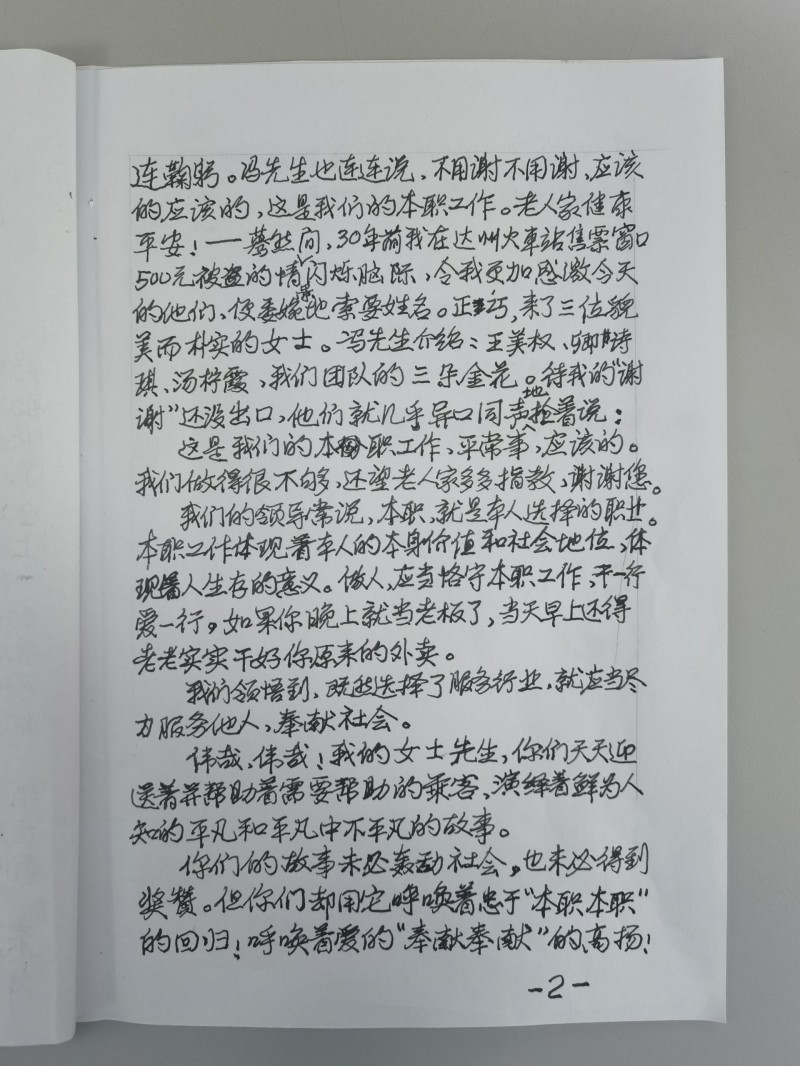 连鞠躬。冯先生也连连说，不用谢不用谢、应该
的应该的，这是我们的本职工作。老人家健康
平安！——蓦然间，30年前我在达州火车站售票窗口
500元被盗的情景闪烁脑际，令我更加感激今天
的他们、便委婉地索要姓名。正巧，来了三位貌
美而朴实的女士。冯先生介绍：王美权、卿诗
琪、汤柠霞，我们团队的三朵金花。待我的“谢
谢”还没出口，他们就几乎异口同声地抢着说：
这是我们的本职工作，平常事，应该的。
我们做得很不够，还望老人家多多指教，谢谢您。
我们的领导常说，本职，就是本人选择的职业。
本职工作体现着本人的本身价值和社会地位，体
现着人生存的意义。做人，应当恪守本职工作，干一行
爱一行，如果你晚上就当老板了，当天早上还得
老老实实干好你原来的外卖。
我们领悟到，既然选择了服务行业，就应当尽
力服务他人，奉献社会。
伟哉，伟哉！我的女士先生，你们天天迎
送着并帮助着需要帮助的乘客，演绎着鲜为人
知的平凡和平凡中不平凡的故事。
你们的故事未必轰动社会，也未必得到
奖赞。但你们却用它呼唤着忠于“本职本职”
的回归！呼唤着爱的“奉献奉献”的高扬！
-2-